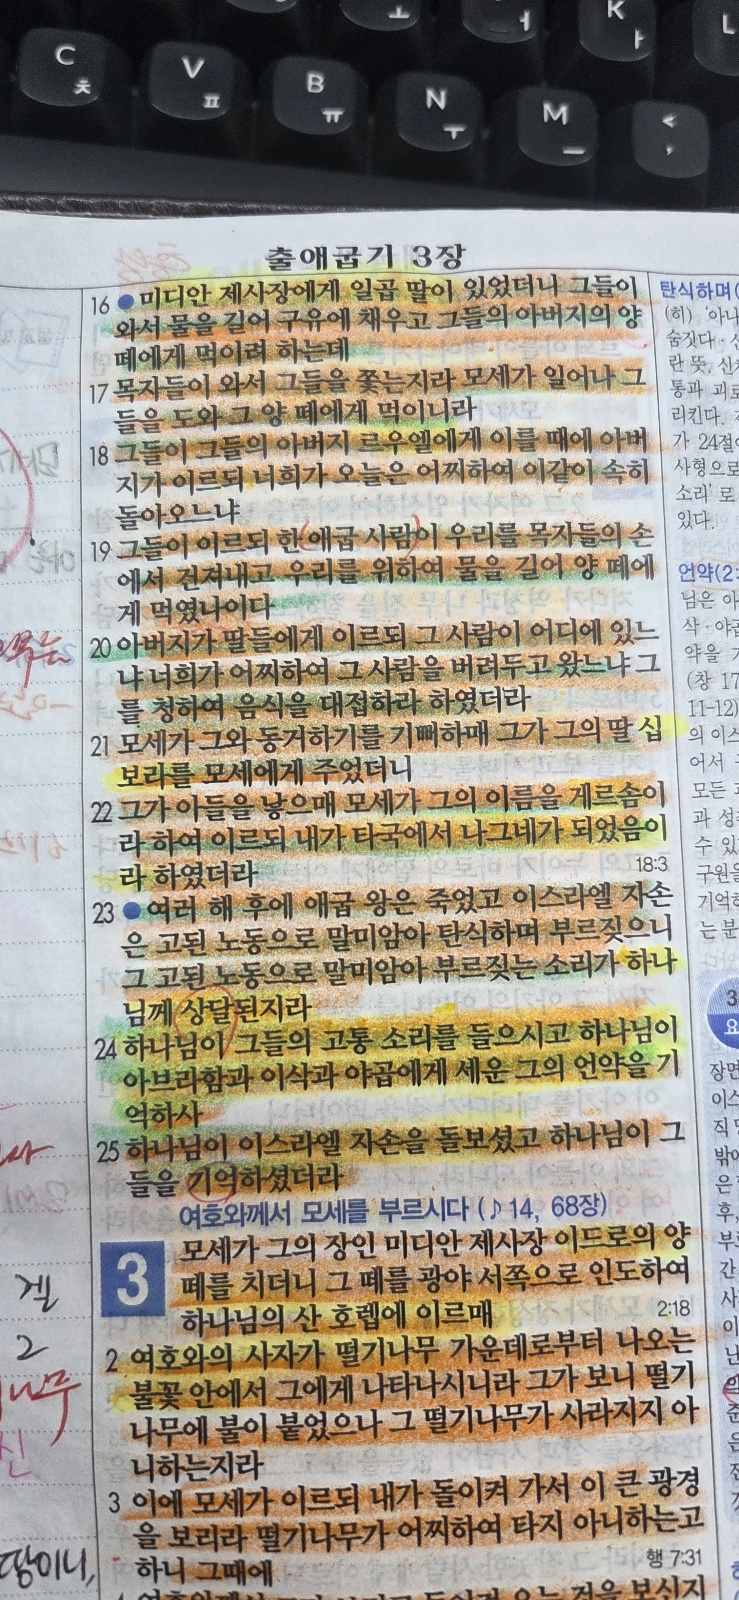 ㅗ
ㅓ
K
ㅏ
L
C
ㅊ
V
ㅍ
B
ㅠ
N
ㅜ
M
ㅡ
<
,
출애굽기 3장
16 ●미디안 제사장에게 일곱 딸이 있었더니 그들이
와서 물을 길어 구유에 채우고 그들의 아버지의 양
떼에게 먹이려 하는데
17 목자들이 와서 그들을 쫓는지라 모세가 일어나 그
들을 도와 그 양 떼에게 먹이니라
18 그들이 그들의 아버지 르우엘에게 이를 때에 아버
지가 이르되 너희가 오늘은 어찌하여 이같이 속히
돌아오느냐
19 그들이 이르되 한 애굽 사람이 우리를 목자들의 손
에서 건져내고 우리를 위하여 물을 길어 양 떼에
게 먹였나이다
20 아버지가 딸들에게 이르되 그 사람이 어디에 있느
냐 너희가 어찌하여 그 사람을 버려두고 왔느냐 그
를 청하여 음식을 대접하라 하였더라
21 모세가 그와 동거하기를 기뻐하매 그가 그의 딸 십
보라를 모세에게 주었더니
22 그가 아들을 낳으매 모세가 그의 이름을 게르솜이
라 하여 이르되 내가 타국에서 나그네가 되었음이
라 하였더라 18:3
23 ●여러 해 후에 애굽 왕은 죽었고 이스라엘 자손
은 고된 노동으로 말미암아 탄식하며 부르짖으니
그 고된 노동으로 말미암아 부르짖는 소리가 하나
님께 상달된지라
24 하나님이 그들의 고통 소리를 들으시고 하나님이
아브라함과 이삭과 야곱에게 세운 그의 언약을 기
억하사
25 하나님이 이스라엘 자손을 돌보셨고 하나님이 그
들을 기억하셨더라
여호와께서 모세를 부르시다 (♪14, 68장)
3 모세가 그의 장인 미디안 제사장 이드로의 양
떼를 치더니 그 떼를 광야 서쪽으로 인도하여
하나님의 산 호렙에 이르매 2:18
2 여호와의 사자가 떨기나무 가운데로부터 나오는
불꽃 안에서 그에게 나타나시니라 그가 보니 떨기
나무에 불이 붙었으나 그 떨기나무가 사라지지 아
니하는지라
3 이에 모세가 이르되 내가 돌이켜 가서 이 큰 광경
을 보리라 떨기나무가 어찌하여 타지 아니하는고
하니 그때에 행 7:31
탄식하며(
(히) '아나
숨짓다·신
란 뜻, 신체
통과 괴로
리킨다.
가 24절
사형으로
소리'로
있다.
언약(2:
님은 아
삭·야곱
약을
(창 17
11-12)
의 이스
어서
모든
과 성
수 있
구원을
기억하
는 분
3
요
장면
이스
직
밖에
은
후,
부
간
겔
2
나무
신
땅이니,